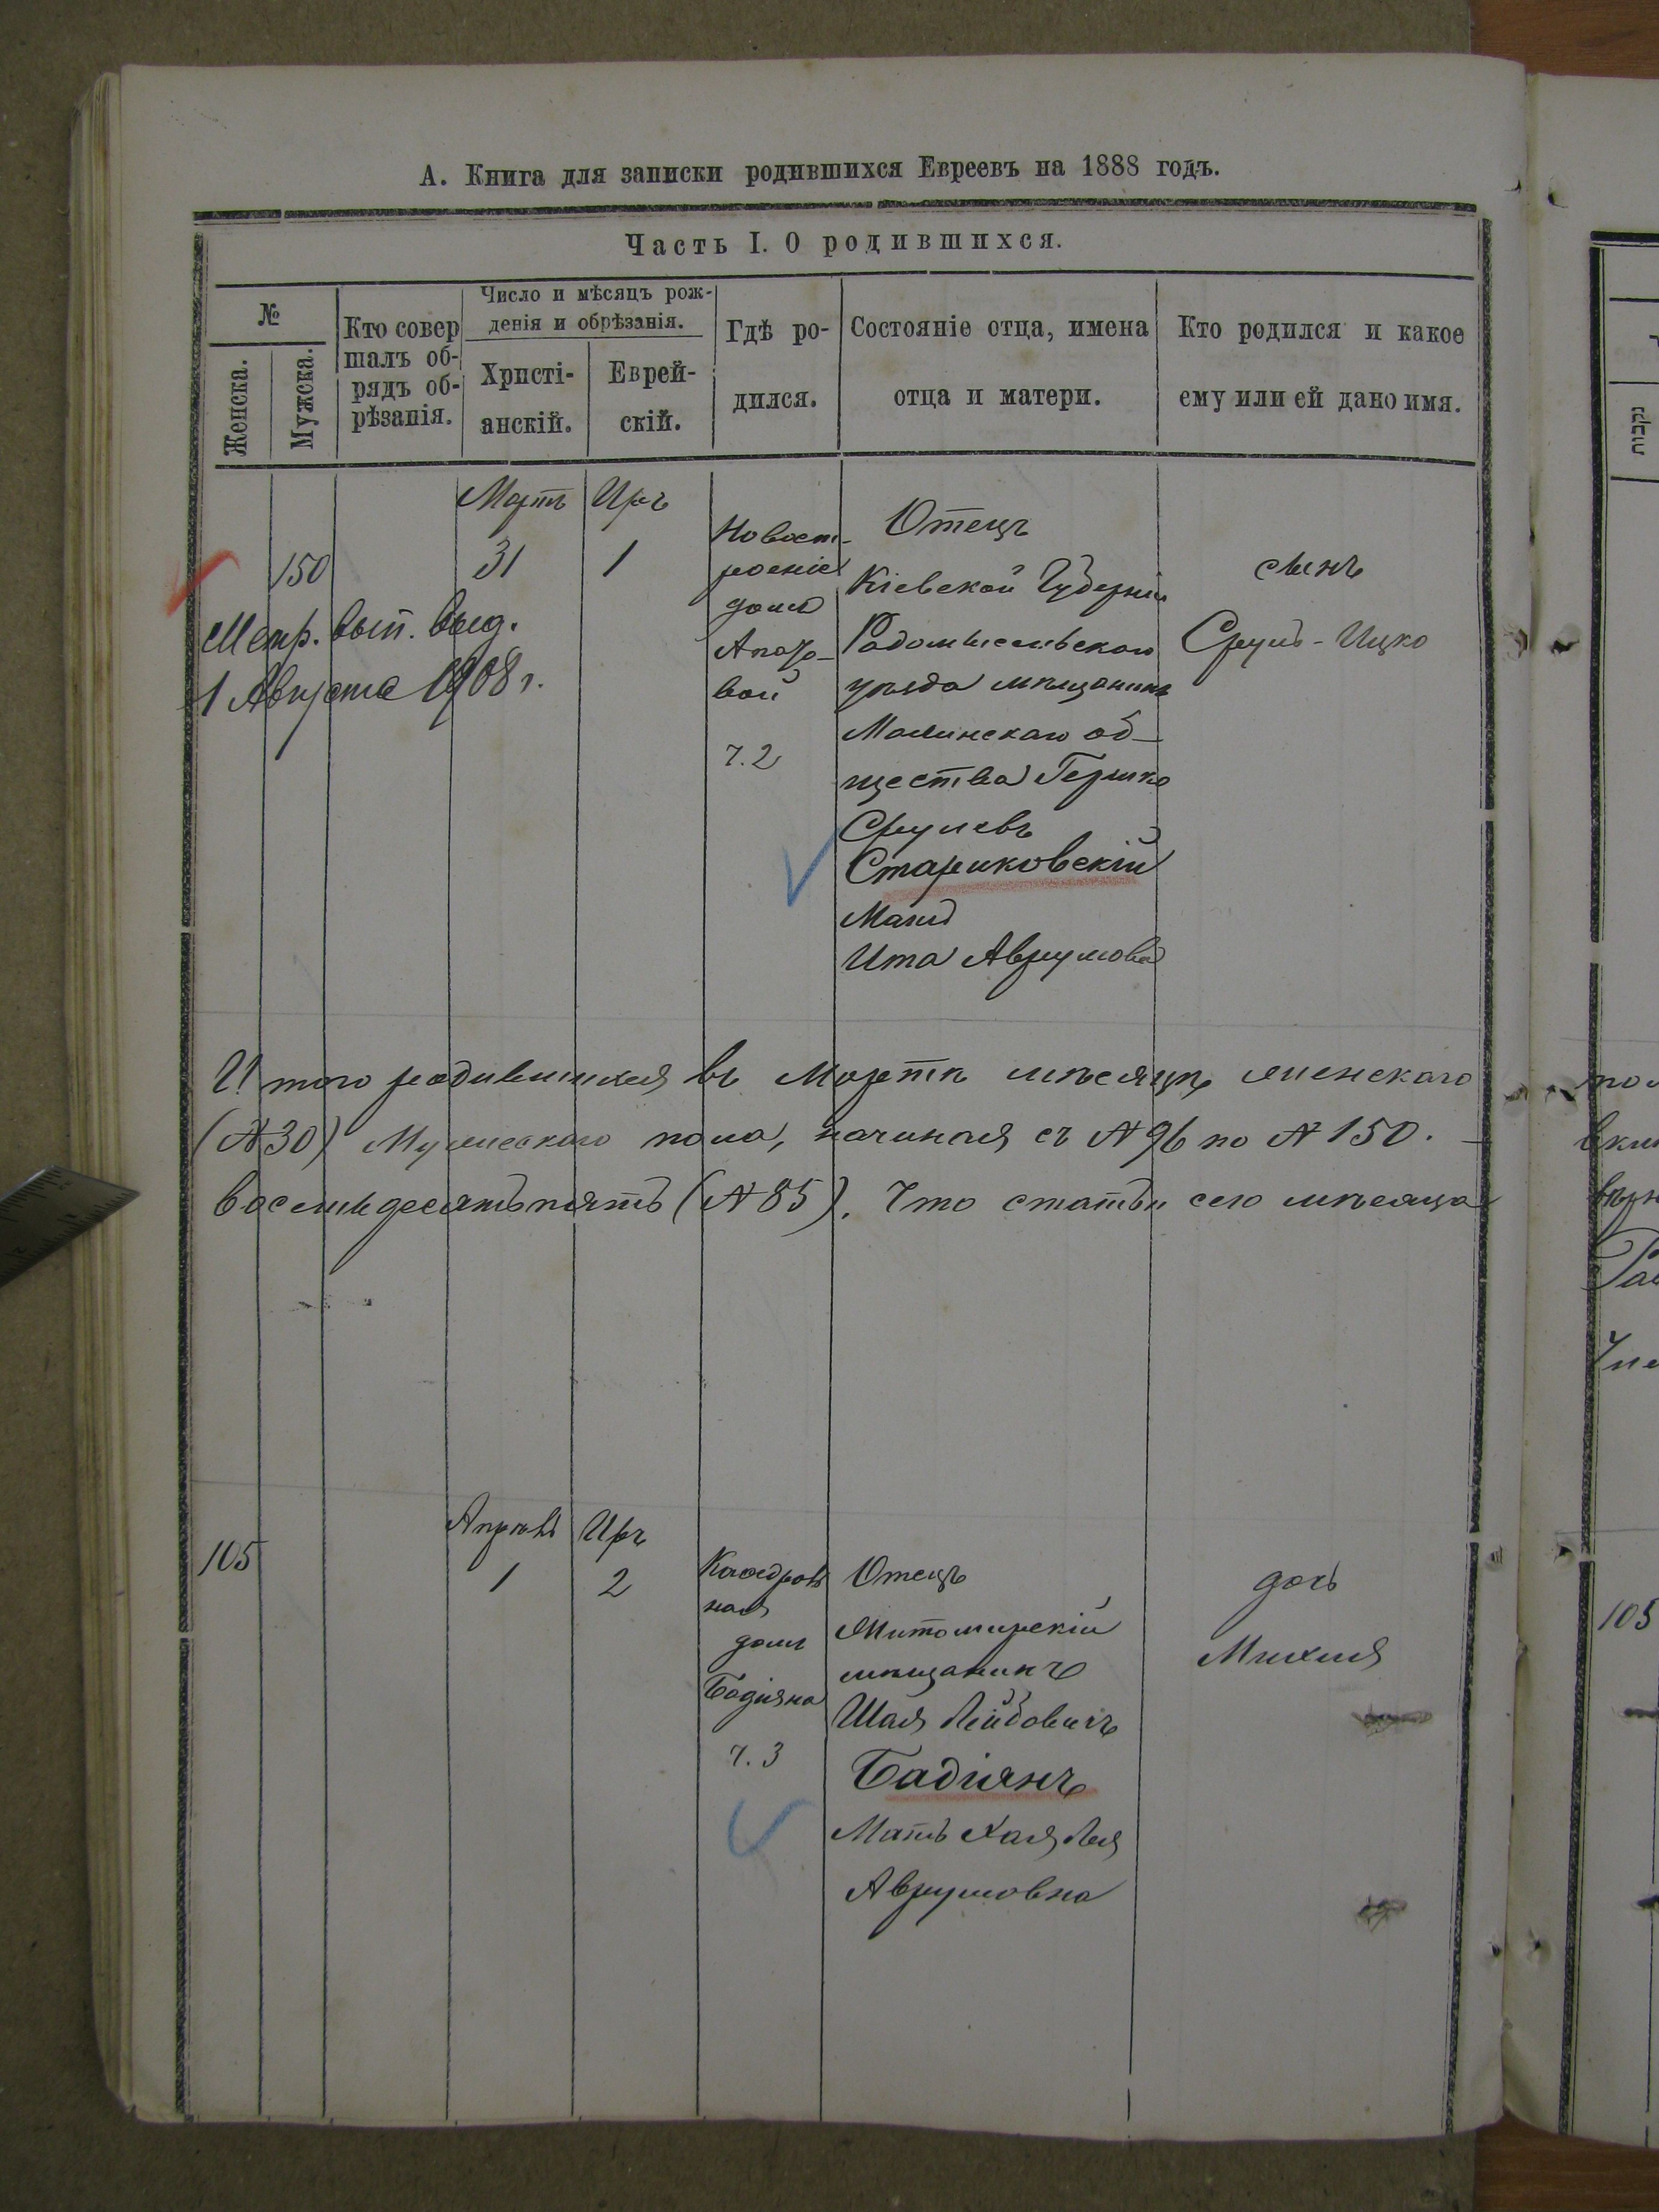 А. Книга для записки родившихся Евреевъ на 1888 годъ.
Часть I. О родившихся.
№
Женска.
Мужска.
Кто совер
шалъ об-
рядъ об-
рѣзанія.
Число и мѣсяцъ рож-
денія и обрѣзанія.
Христі-
анскій.
Еврей-
скій.
Гдѣ ро-
дился.
Состояніе отца, имена
отца и матери.
Кто родился и какое
ему или ей дано имя.
150
Метр. вып. выд.
1 Августа 1908 г.
Мартъ
31
Иръ
1
Новост-
роеніе
домъ
вой
ч. 2
Отецъ
Кіевской Губерніи
Радомысельскаго
уѣзда мѣщанинъ
Малинскаго об-
щества Гершко
Срулевъ
Стариковскій
Мать
Ита Аврумова
сынъ
Сруль-Ицко
Итого родившихся въ Мартѣ мѣсяцѣ женскаго
(№ 30) Мужескаго пола, начиная съ № 96 по № 150.
восемьдесятъ пять (№ 85). Что статьи сего мѣсяца
105
Апрѣль
1
Иръ
2
Кафедраль
ная
домъ
Бадіяна
ч. 3
Отецъ
Житомирскій
мѣщанинъ
Шая Лейбовичъ
Бадіянъ
Мать Хая Лея
Аврумовна
дочь
Михля
נקבות
105